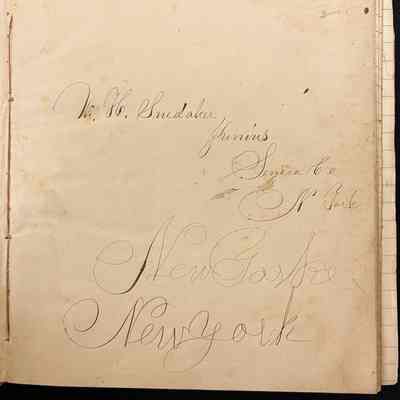 W. H. Snedaker
Junius
Seneca Co
N York
New York
New York